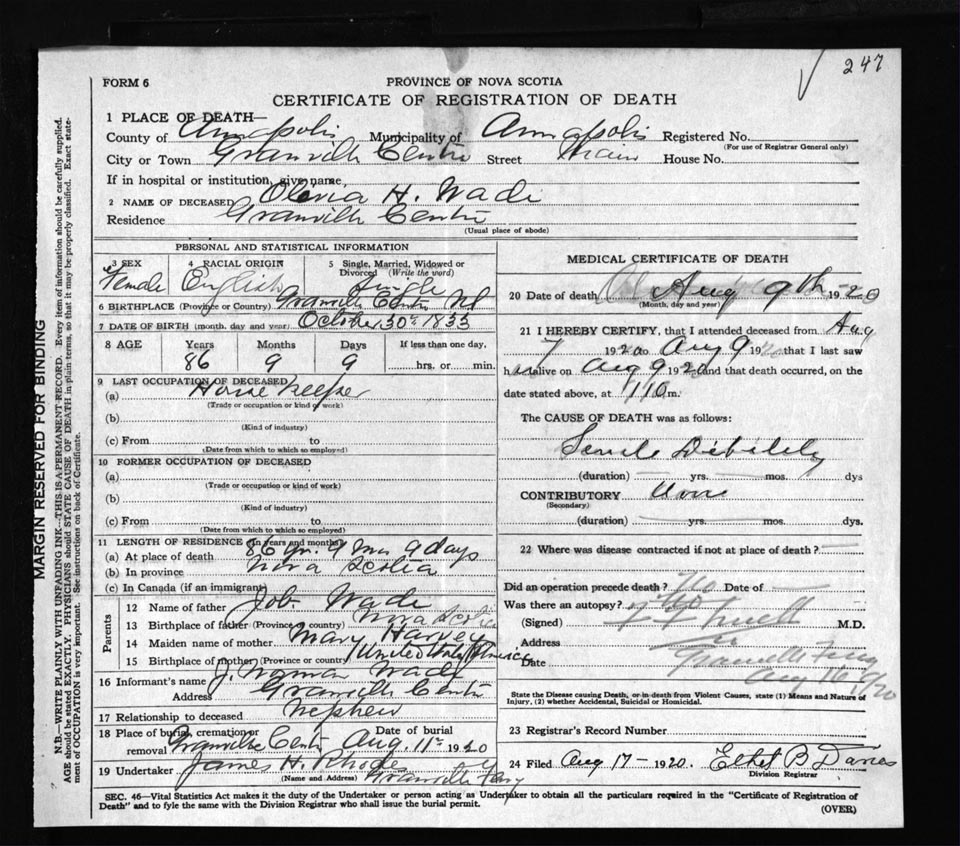 247
FORM 6
PROVINCE OF NOVA SCOTIA
CERTIFICATE OF REGISTRATION OF DEATH
1 PLACE OF DEATH—
County of Annapolis Municipality of Annapolis Registered No.
(For use of Registrar General only)
City or Town Granville Centre Street Main House No.
If in hospital or institution, give name,
2 NAME OF DECEASED Olevia H. Wade
Residence Granville Centre
(Usual place of abode)
PERSONAL AND STATISTICAL INFORMATION
3 SEX 4 RACIAL ORIGIN 5 Single, Married, Widowed or Divorced (Write the word)
Female English Single
6 BIRTHPLACE (Province or Country) Granville Centre NS
7 DATE OF BIRTH (month, day and year) October 30th 1833
8 AGE Years Months Days If less than one day,
86 9 9 hrs. or min.
9 LAST OCCUPATION OF DECEASED
(a) House Keeper
(Trade or occupation or kind of work)
(b)
(Kind of industry)
(c) From to
(Date from which to which so employed)
10 FORMER OCCUPATION OF DECEASED
(a)
(Trade or occupation or kind of work)
(b)
(Kind of industry)
(c) From to
(Date from which to which so employed)
11 LENGTH OF RESIDENCE (in years and months)
(a) At place of death 86 yr. 9 mo 9 days
(b) In province Nova Scotia
(c) In Canada (if an immigrant)
Parents
12 Name of father Job Wade
13 Birthplace of father (Province or country) Nova Scotia
14 Maiden name of mother Mary Harvey
15 Birthplace of mother (Province or country) United States America
16 Informant's name J. Norman Wade
Address Granville Centre
17 Relationship to deceased Nephew
18 Place of burial, cremation or removal Granville Centre Date of burial Aug. 11th 1920
19 Undertaker James H. Rhode
(Name and Address) Granville Ferry
MEDICAL CERTIFICATE OF DEATH
20 Date of death Aug 9th 1920
(Month, day and year)
21 I HEREBY CERTIFY, that I attended deceased from Aug
7 1920 to Aug 9 1920 that I last saw
h alive on Aug 9 1920 and that death occurred, on
date stated above, at 110 m.
The CAUSE OF DEATH was as follows:
Senile Debility
(duration) yrs. mos. dys
CONTRIBUTORY None
(Secondary)
(duration) yrs. mos. dys.
22 Where was disease contracted if not at place of death?
Did an operation precede death? No Date of
Was there an autopsy? No
(Signed) M.D.
Address Granville Ferry
Date Aug 16 1920
State the Disease causing Death, or in death from Violent Causes, state (1) Means and Nature of
Injury, (2) whether Accidental, Suicidal or Homicidal.
23 Registrar's Record Number
24 Filed Aug 17 1920. Ethel B Davies
Division Registrar
SEC. 46—Vital Statistics Act makes it the duty of the Undertaker or person acting as Undertaker to obtain all the particulars required in the "Certificate of Registration of
Death" and to fyle the same with the Division Registrar who shall issue the burial permit.
(OVER)
MARGIN RESERVED FOR BINDING
N.B.—WRITE PLAINLY WITH UNFADING INK—THIS IS A PERMANENT RECORD. Every item of information should be carefully supplied.
AGE should be stated EXACTLY. PHYSICIANS should STATE CAUSE OF DEATH in plain terms, so that it may be properly classified. Exact state-
ment of OCCUPATION is very important. See instructions on back of Certificate.